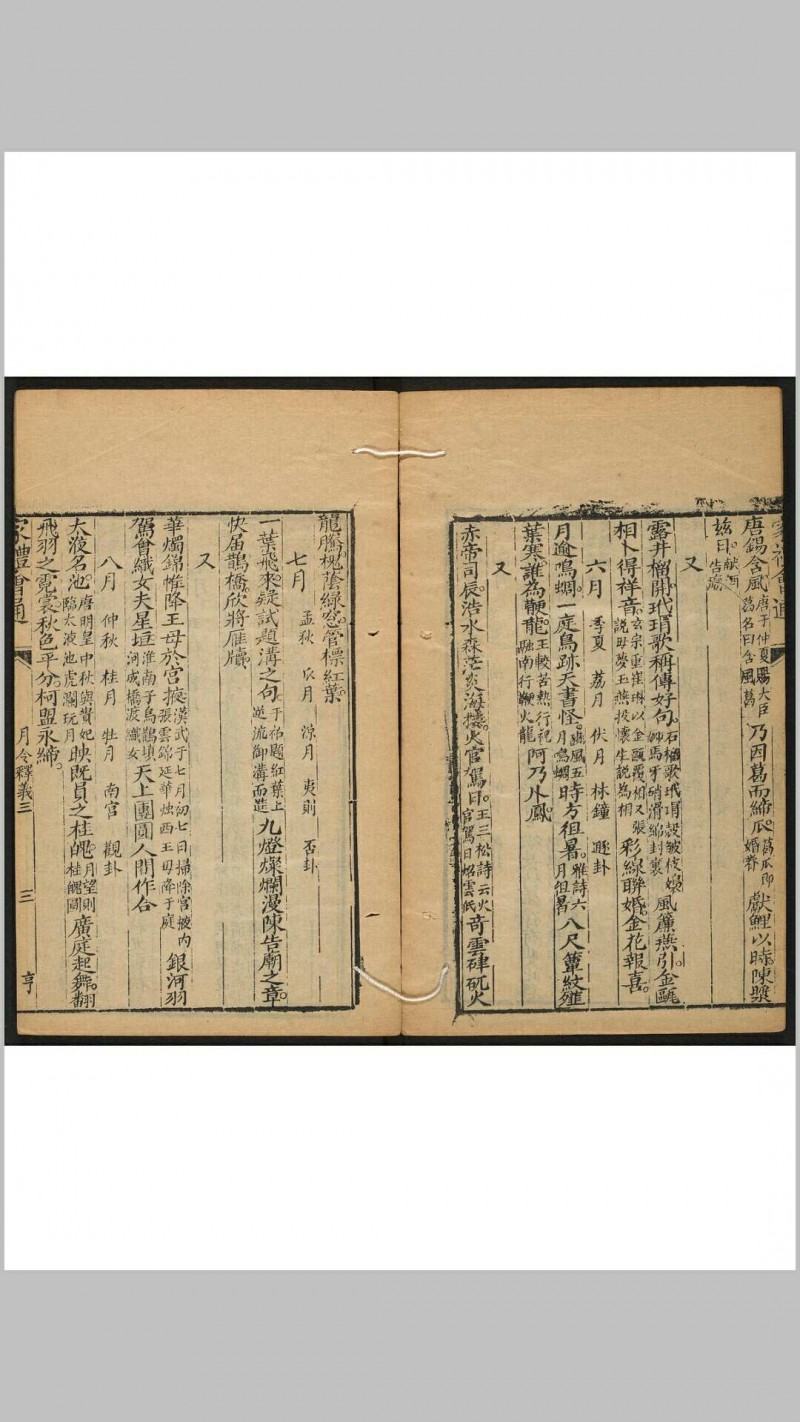 唐錫含風唐于仲夏賜大臣葛名曰含風葛乃因葛而締瓜葛瓜即婚眷獻鯉以時陳槳
兹日献酒告廟
又
露井榴開玳瑁歌稱傳好句石榴歌玳瑁殼皴伎嫋嫋馬牙硝滑綿封裹風簾燕引金甌
相卜得祥音玄宗重崔琳以金甌覆相又張説母夢玉燕投懷生説為相彩線聯婚金花報喜
六月 季夏 荔月 伏月 林鐘 遯卦
月逾鳴蜩一庭鳥跡天書怪豳風五月鳴蜩時方徂暑雅詩六月徂暑八尺簟紋雖
葉寒誰為鞭龍王轂苦熱行祝融南行鞭火龍阿乃卜鳳
又
赤帝司辰浩水森茫炎海接火官駕日王三松詩云火官駕日炤雲低奇雲硉矹火
龍騰槐蔭綠窓管標紅葉
七月 孟秋 瓜月 涼月 夷則 否卦
一葉飛來疑試題溝之句于祐題紅葉上逆流御溝而造九燈燦爛漫陳告廟之章
快届鵲橋欣將雁牘
又
華燭錦帷降王母於宫掖漢武于七月初七日掃除宮掖内張雲錦延華烛西王母降于庭銀河羽
駕會織女夫星垣淮南子烏鵲填河成橋渡織女天上團圓人間作合
八月 仲秋 桂月 壯月 南宫 觀卦
太液名池唐明皇中秋與貴妃臨太液池虎瀾玩月映既員之桂魄月望則桂魄圓廣庭起舞翻
飛羽之霓裳秋色平分柯盟永締
家禮會通 月令釋義三 三 亨